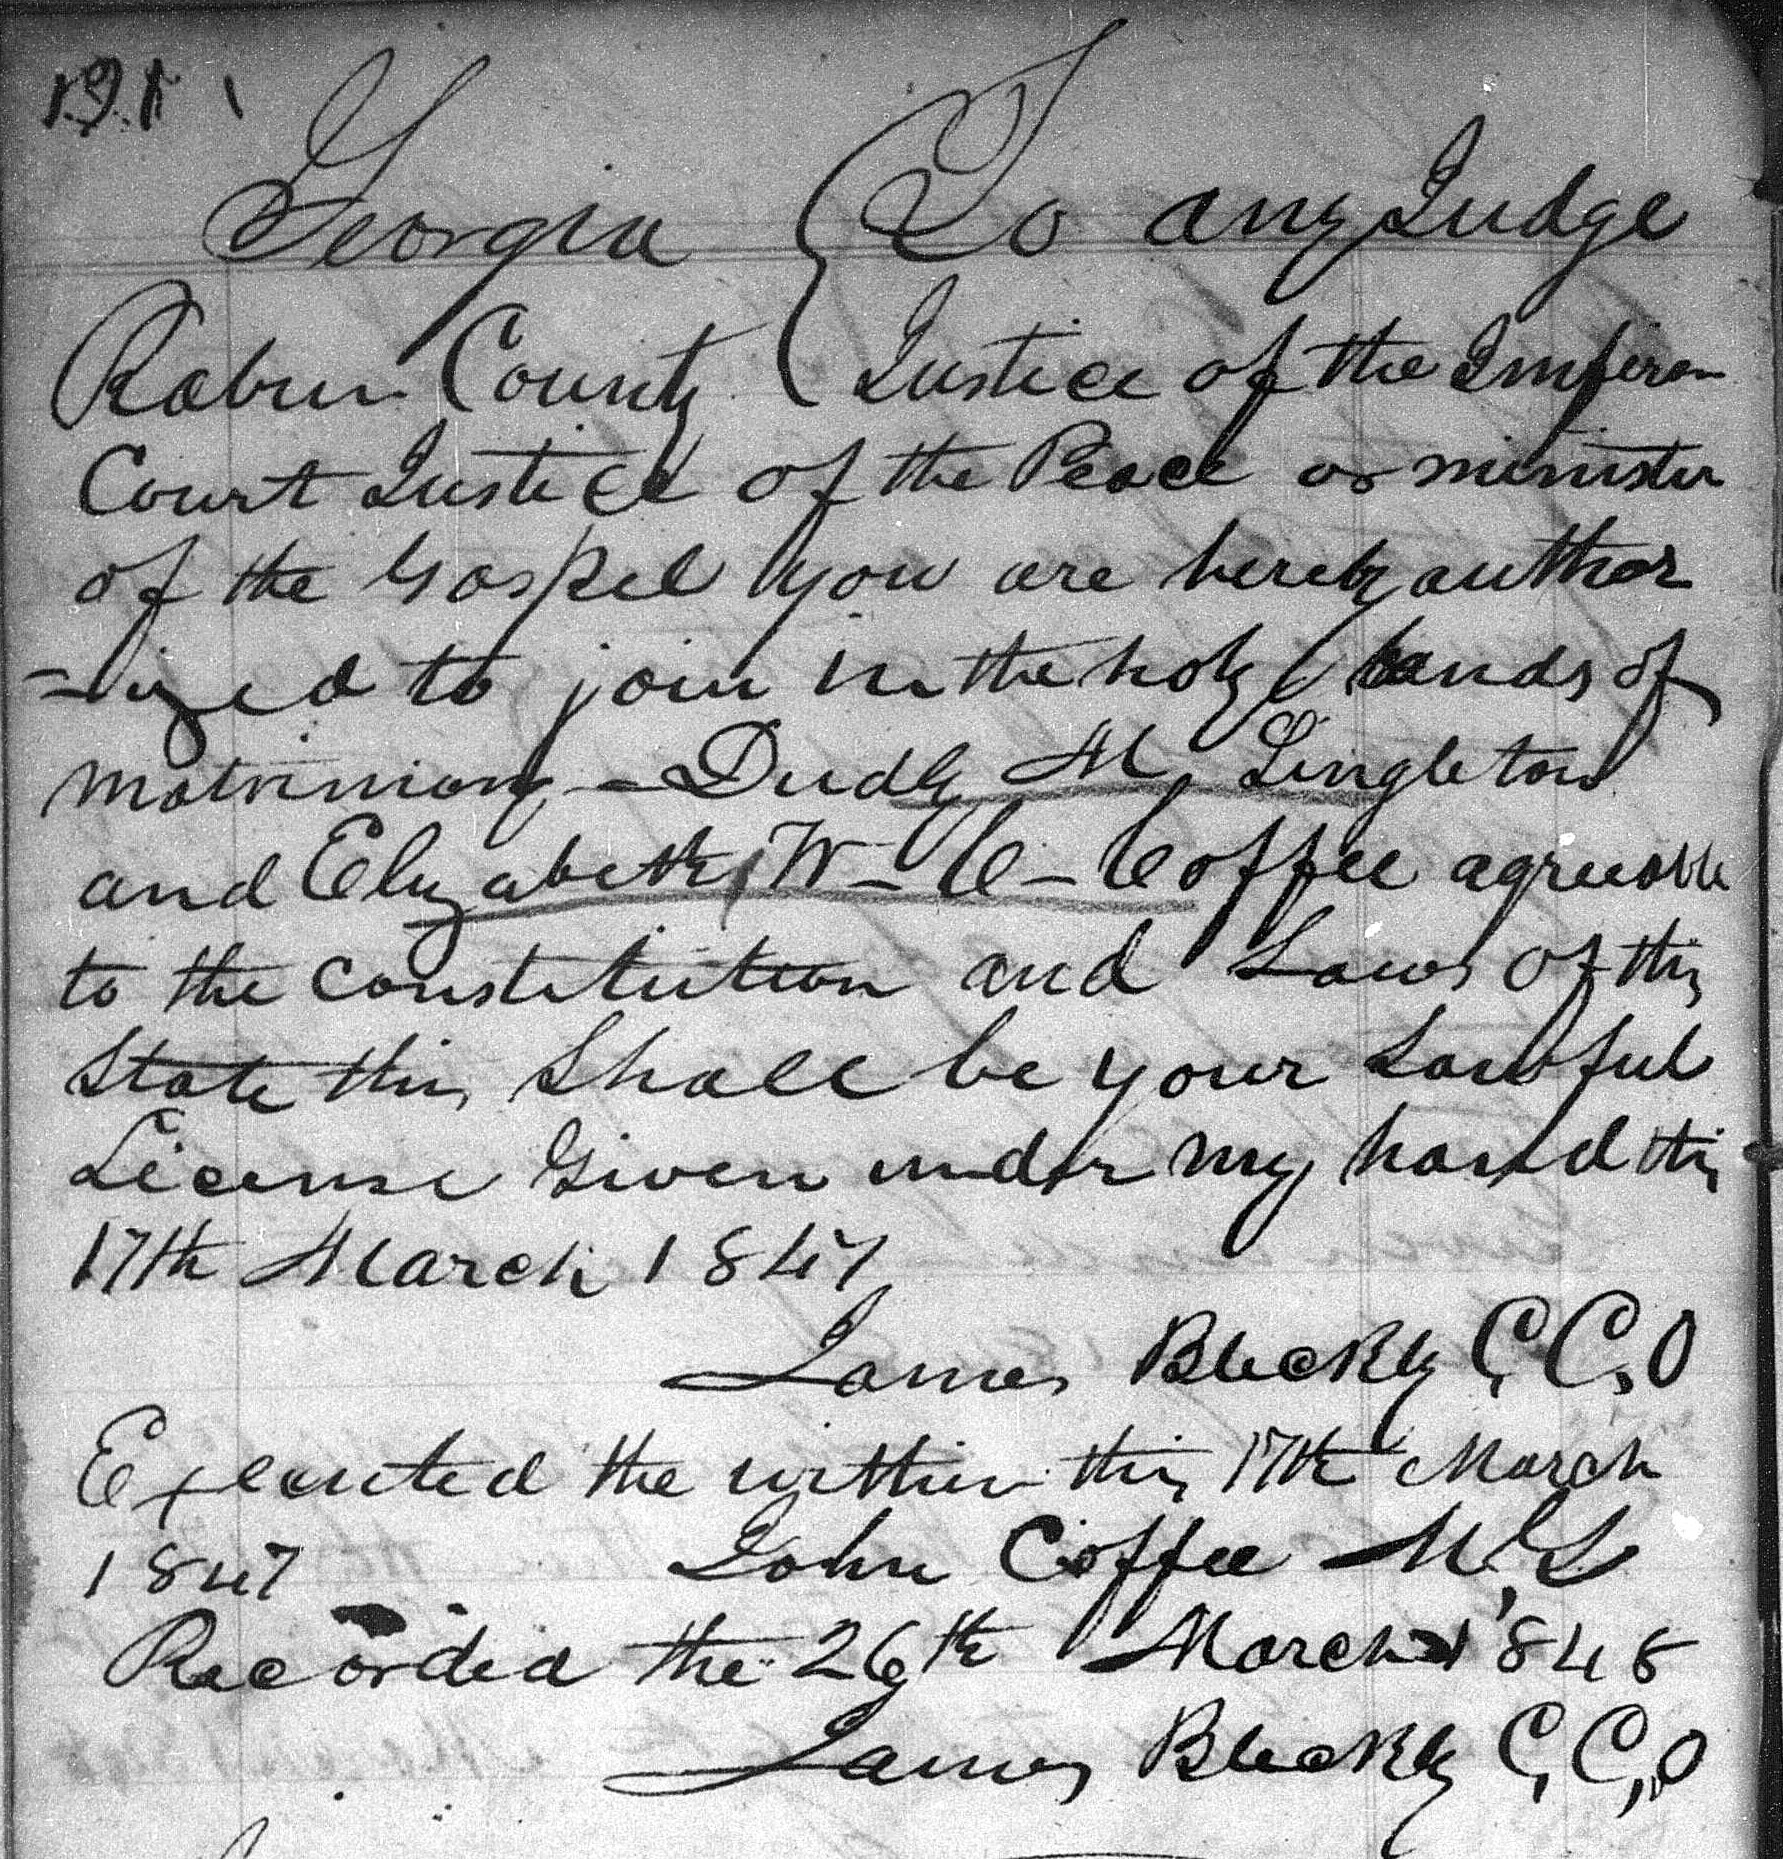 Georgia To any Judge
Rabun County Justice of the Inferior
Court Justice of the Peace or minister
of the Gospel you are hereby author
=ized to join in the holy bands of
matrimony - Dudly M Singleton
and Elizabeth W - C - Coffee agreeable
to the constitution and Laws of this
State this Shall be your Lawful
License Given under my hand this
17th March 1847
James Bleckly C, C, O
Executed the within this 17th March
1847 John Coffee M, G
Recorded the 26th March 1848
James Bleckly C, C, O